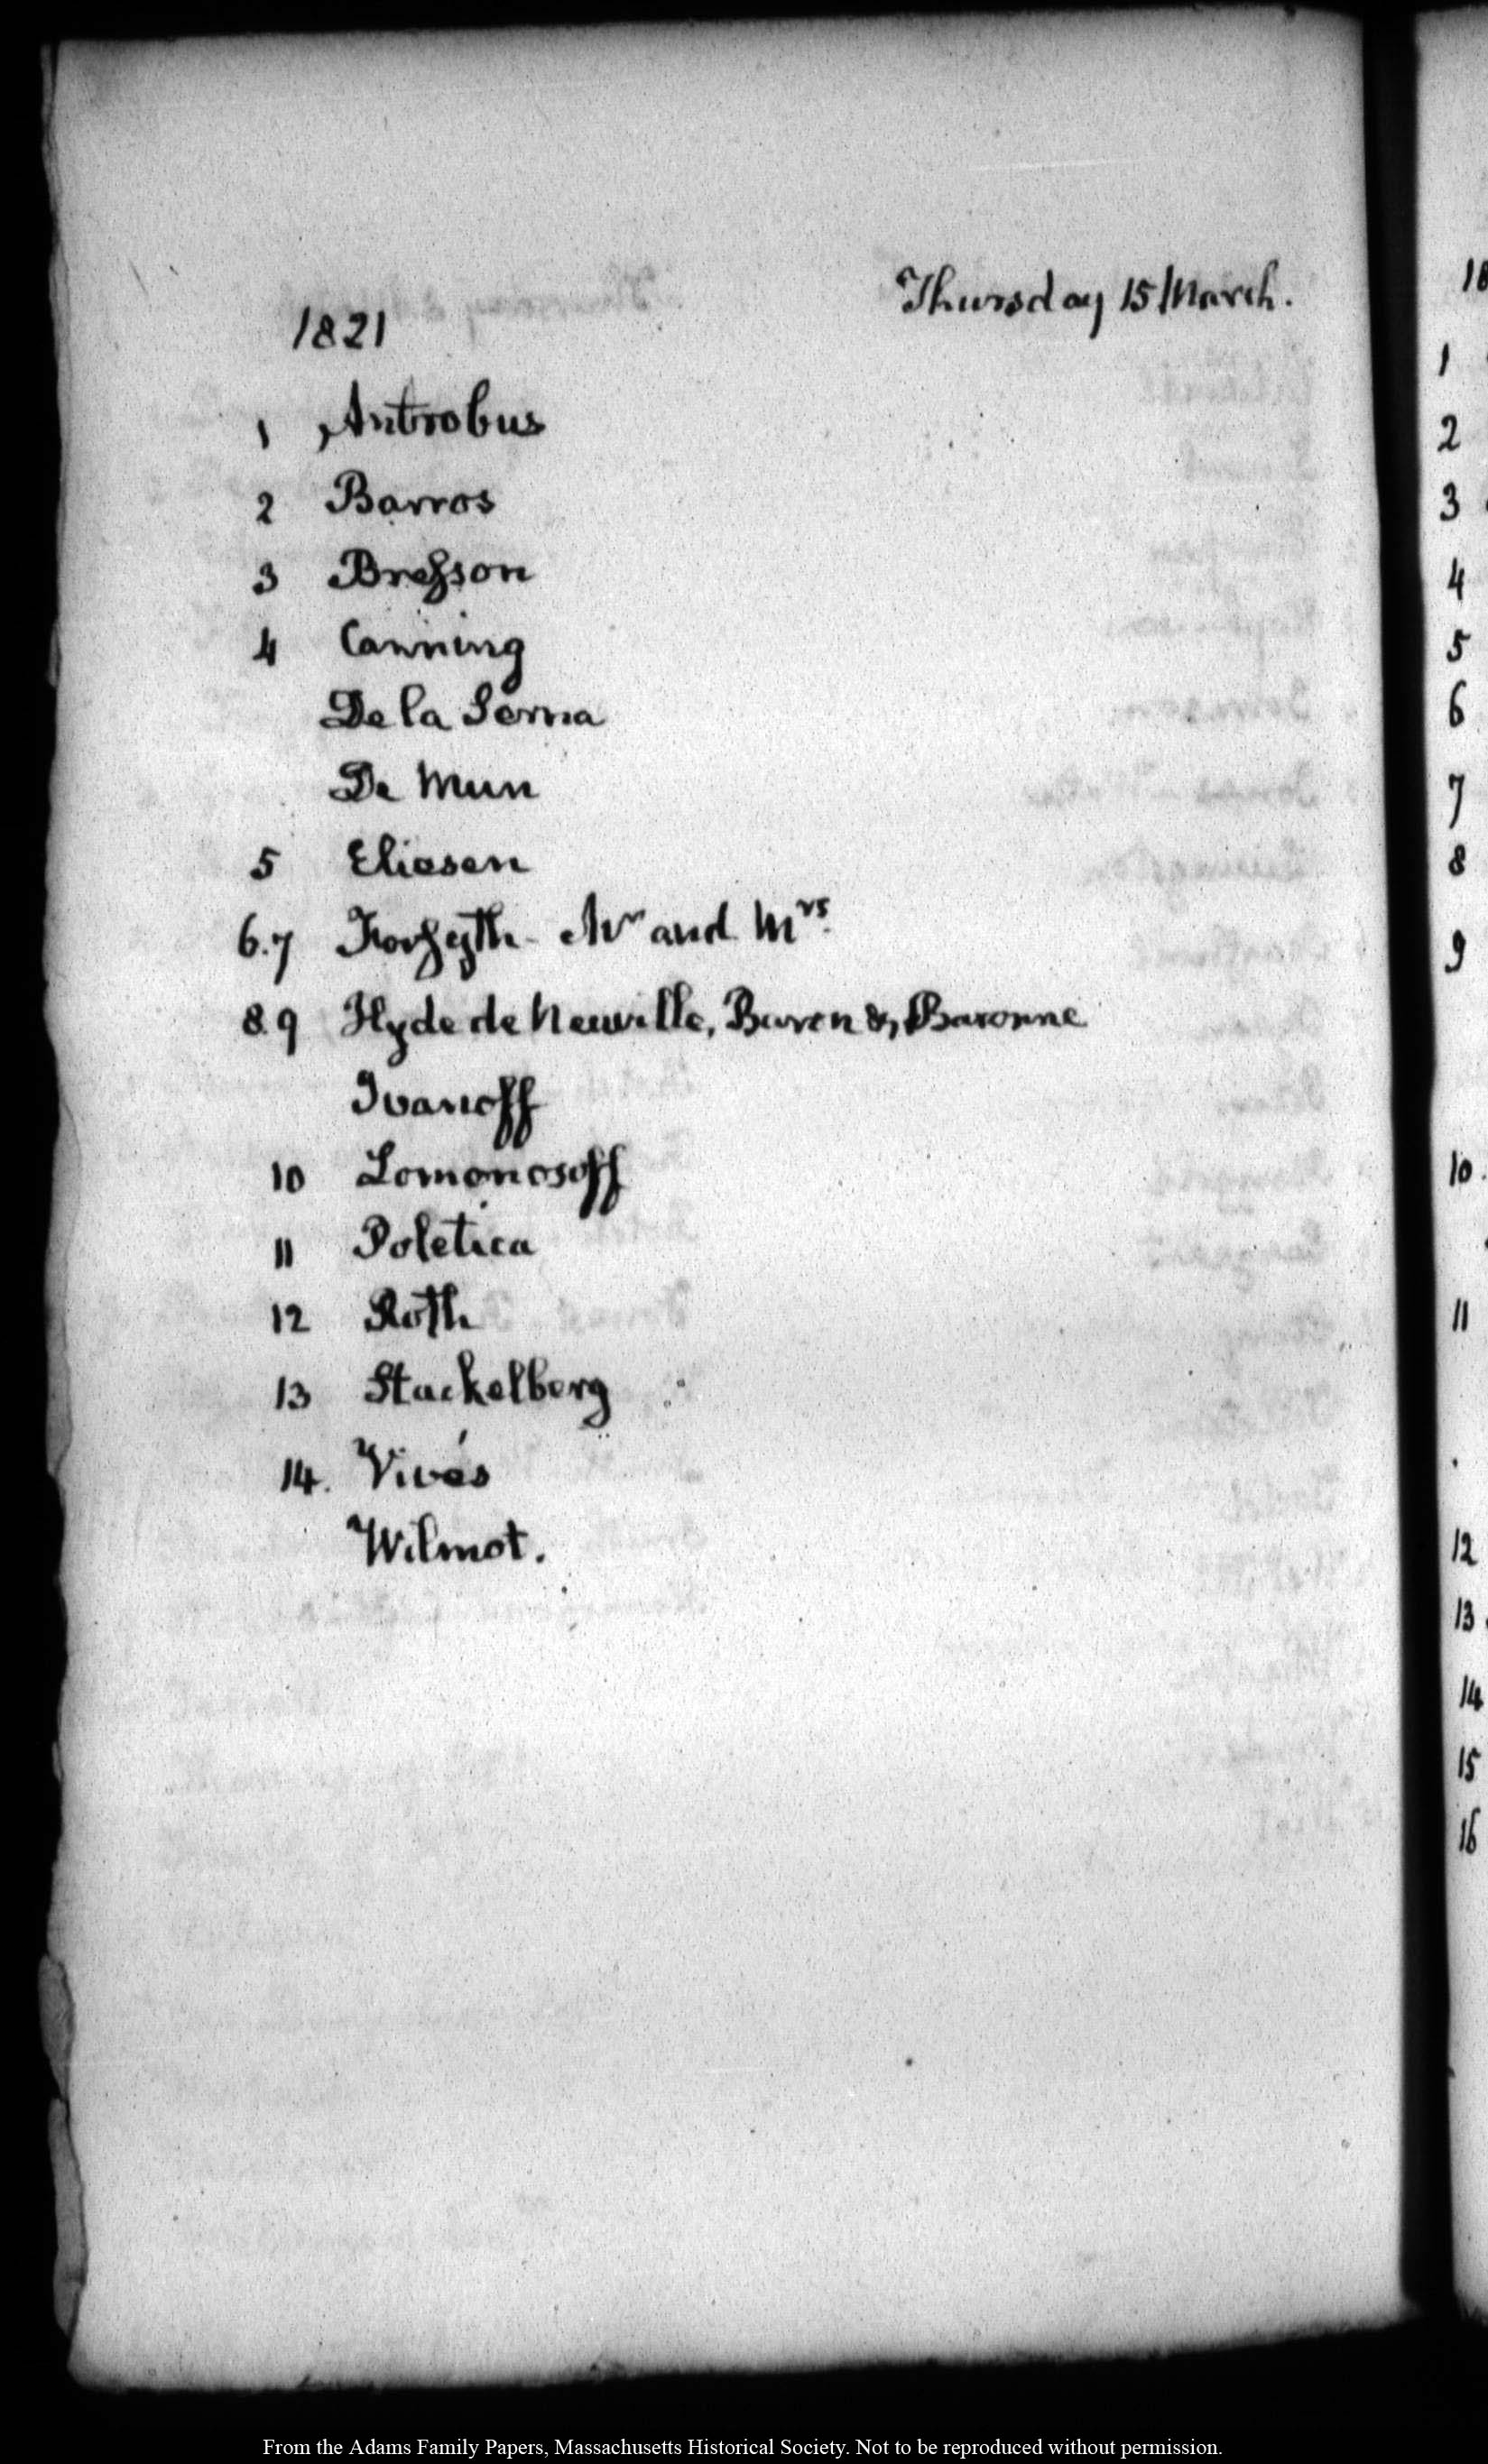 Thursday 15 March.
1821
1 Antrobus
2 Barros
3 Breſson
4 Canning
De la Serna
De Mun
5 Eliasen
6.7 Forsyth - Mr and Mrs.
8 9 Hyde de Neuville, Baron & Baronne
Ivanoff
10 Lomonosoff
11 Poletica
12 Roth
13 Stackelberg
14. Vivés
Wilmot.
18
1
2
3
4
5
6
7
8
9
10.
11
12
13
14
15
16
From the Adams Family Papers, Massachusetts Historical Society. Not to be reproduced without permission.